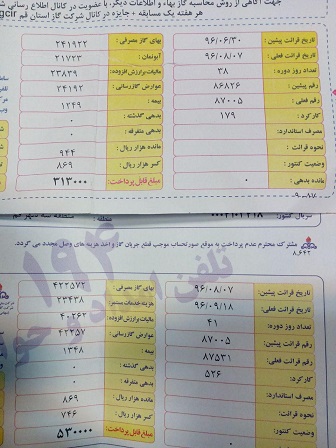 جهت آگاهی از روش محاسبه گاز بهاء و اطلاعات دیگر، با عضویت در کانال اطلاع رسانی
هر هفته یک مسابقه + جایزه در کانال شرکت گاز استان قم
تاریخ قرائت پیشین: ۹۶/۰۶/۳۰ بهای گاز مصرفی: ۲۴۱۹۲۲
تاریخ قرائت فعلی: ۹۶/۰۸/۰۷ آبونمان: ۲۱۷۲۳
تعداد روز دوره: ۳۸ مالیات برارزش افزوده: ۲۳۸۳۹
رقم پیشین: ۸۶۸۲۶ عوارض گازرسانی: ۲۴۱۹۲
رقم فعلی: ۸۷۰۰۵ بیمه: ۱۲۴۹
کارکرد: ۱۷۹ بدهی گذشته: ۰
مصرف استاندارد: بدهی متفرقه: ۰
نحوه قرائت: مانده هزار ریال: ۹۴۴
وضعیت کنتور: کسر هزار ریال: ۸۶۹
مانده بدهی: ۰ مبلغ قابل پرداخت: ۳۱۳۰۰۰
سریال کنتور:
مشترک محترم عدم پرداخت به موقع صورتحساب موجب قطع جریان گاز و اخذ هزینه های وصل مجدد می گردد.
۱۹۴
تلفن
تاریخ قرائت پیشین: ۹۶/۰۸/۰۷ بهای گاز مصرفی: ۴۲۲۵۷۲
تاریخ قرائت فعلی: ۹۶/۰۹/۱۸ هزینه خدمات مستمر: ۲۳۴۳۸
تعداد روز دوره: ۴۱ مالیات برارزش افزوده: ۴۰۲۶۲
رقم قرائت پیشین: ۸۷۰۰۵ عوارض گازرسانی: ۴۲۲۵۷
رقم قرائت فعلی: ۸۷۵۳۱ بیمه: ۱۳۴۸
کارکرد: ۵۲۶ بدهی گذشته: ۰
مصرف استاندارد: بدهی متفرقه: ۰
نحوه قرائت: مانده هزار ریال: ۸۶۹
وضعیت کنتور: کسر هزار ریال: ۷۴۶
مانده بدهی: ۰ مبلغ قابل پرداخت: ۵۳۰۰۰۰